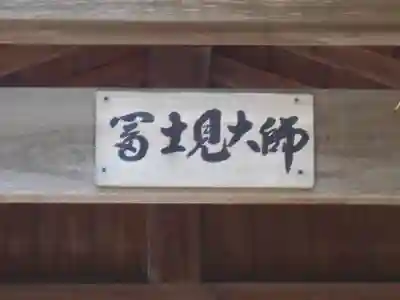 冨士見大師